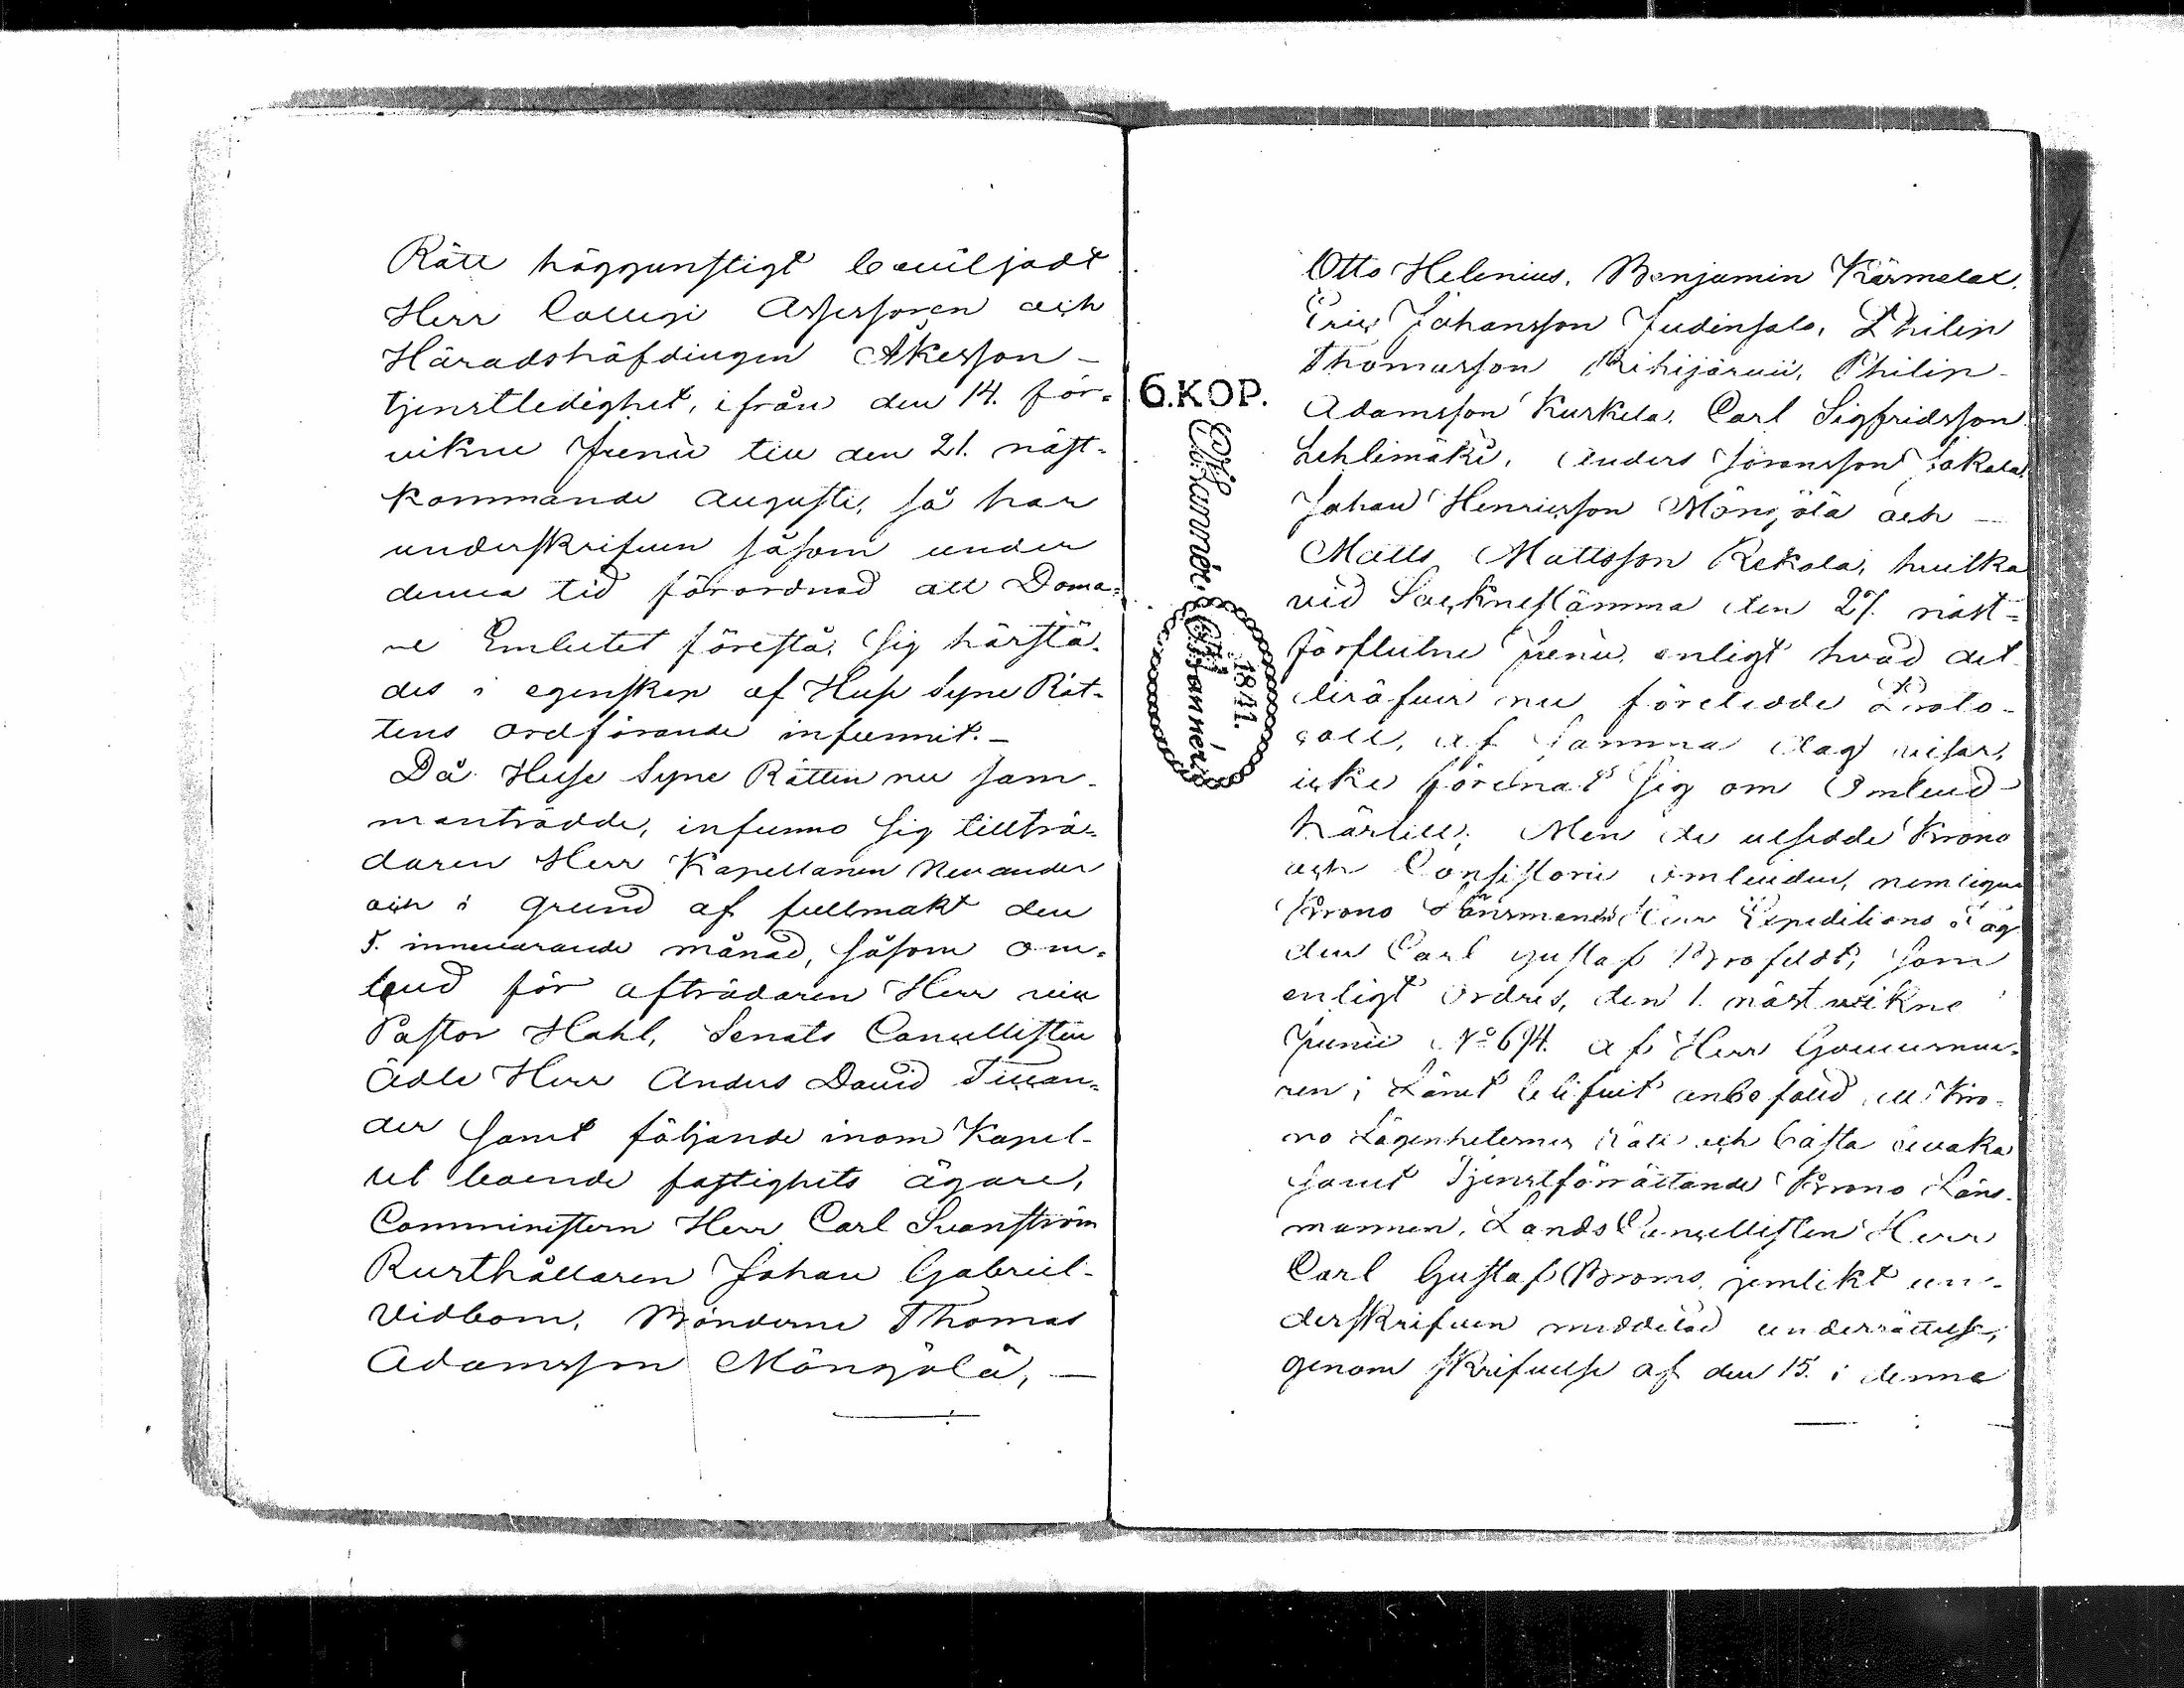 Rätt höggunstigt beviljadt
Herr Collegi Assessoren och
Häradshöfdingen Åkesson -
tjenstledighet, ifrån den 14. för-
vikne Junii till den 21. näst-
kommande Augusti, så har
underskrifven såsom under
denna tid förordnad att Doma-
re Embetet förestå, sig härstä-
des i egenskap af Huse Syne Rät-
tens ordförande infunnit. -
Då Huse Syne Rätten nu sam-
manträdde, infunno sig tillträ-
daren Herr Kapellanen Nevander
och i grund af fullmakt den
5. innevarande månad, såsom om-
bud för afträdaren Herr vice
Pastor Hahl, Senats Cancellisten
Ädle Herr Anders David
samt följande inom Kapel-
let boende fastighets ägare,
Comministern Herr Carl Svanström
Rusthållaren Johan Gabriel
Vidbom, Bönderne Thomas
Adamsson Möngölä, -
6.KOP.
1841.
Otto Helenius, Benjamin Kärmelax,
Eric Johansson Judinsalo, Philip
Thomasson Rihijärvii, Philip
Adamsson Kurkela, Carl Sigfridsson
Lehlimäki, Anders Göransson Jokela,
Johan Henricsson Möngölä och -
Matts Mattsson Rekola, hvilka
vid Sockne stämma den 27. näst-
förflutne Junii, enligt hvad det
deröfver nu företedde Proto-
coll, af samma dag visar,
icke förenat sig om Ombud
härtill; Men de utsedde Krono
och Consistorii ombuden, nemligen
Krono Länsmanen Herr Expeditions Fog-
den Carl Gustaf Brofeldt, som
enligt ordres, den 1. nästvikne
Junii No 694. af Herr Guverneu-
ren i Länet blifvit anbefalld att Kro-
no Lägenheternes rätt och bästa bevaka
samt Tjenstförrättande Krono Läns-
mannen, Lands Cancellisten Herr
Carl Gustaf Broms, jemlikt un-
derskrifven meddelad underrättelse,
genom skrifvelse af den 15. i denne